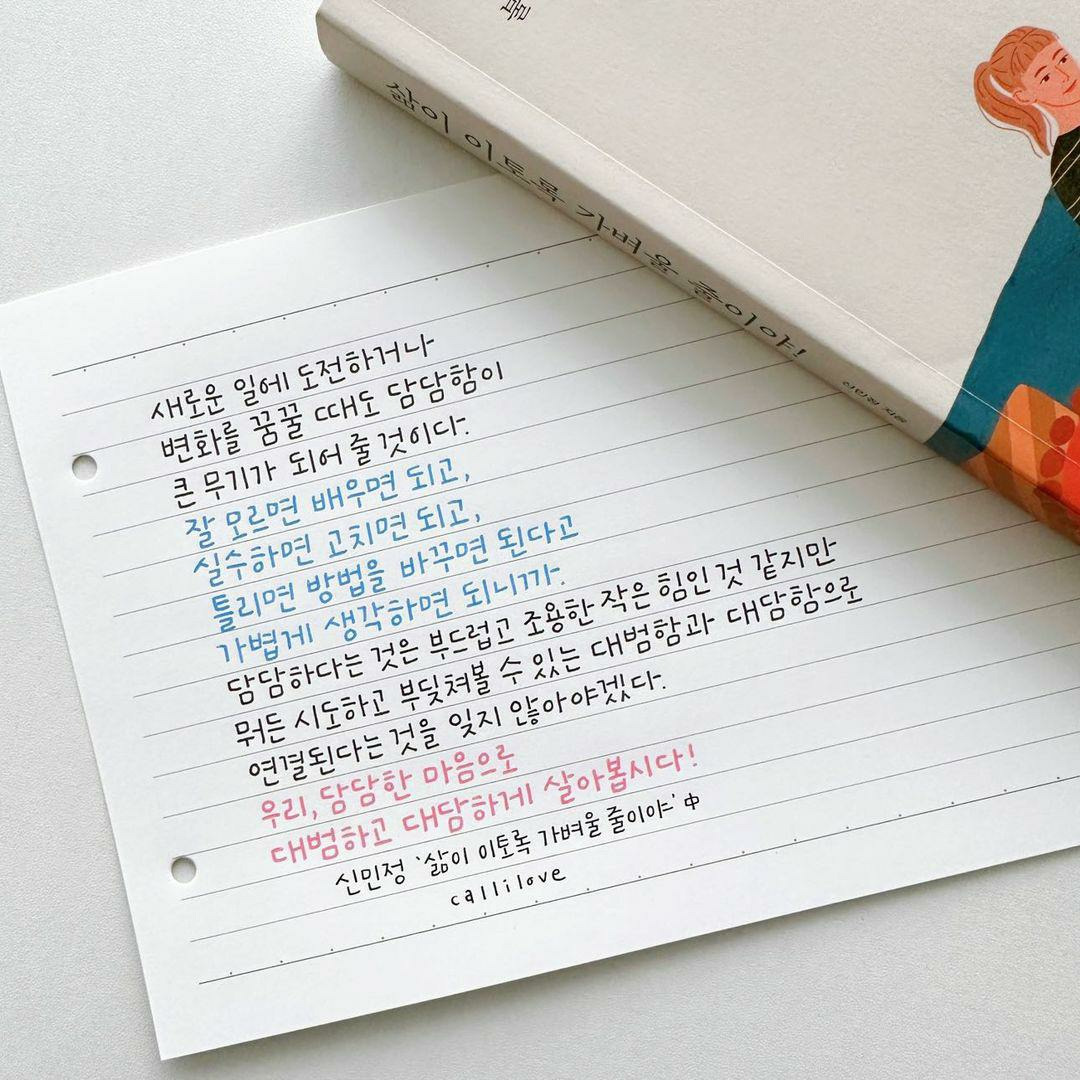 삶이 이토록 가벼울 줄이야!
신민정 지음
새로운 일에 도전하거나
변화를 꿈꿀 때도 담담함이
큰 무기가 되어 줄 것이다.
잘 모르면 배우면 되고,
실수하면 고치면 되고,
틀리면 방법을 바꾸면 된다고
가볍게 생각하면 되니까.
담담하다는 것은 부드럽고 조용한 작은 힘인 것 같지만
뭐든 시도하고 부딪쳐볼 수 있는 대범함과 대담함으로
연결된다는 것을 잊지 않아야겠다.
우리, 담담한 마음으로
대범하고 대담하게 살아봅시다!
신민정 '삶이 이토록 가벼울 줄이야' 中
callilove